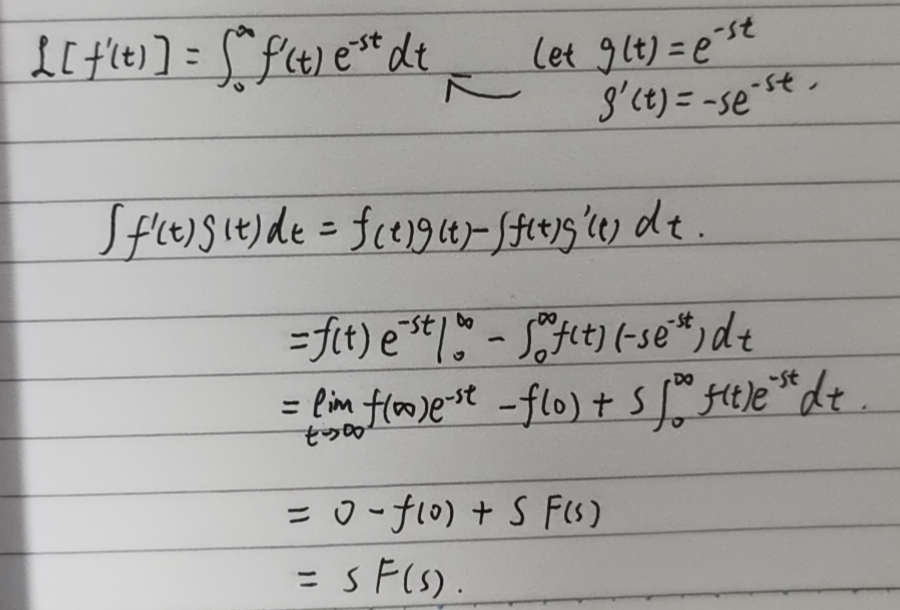 ℒ[f'(t)] = ∫₀^∞ f'(t) e^{-st} dt ← let g(t) = e^{-st}
g'(t) = -se^{-st}.
∫f'(t)g(t)dt = f(t)g(t) - ∫f(t)g'(t) dt.
= f(t) e^{-st} |₀^∞ - ∫₀^∞ f(t) (-se^{-st}) dt
= lim_{t→∞} f(∞)e^{-st} - f(0) + s ∫₀^∞ f(t)e^{-st} dt.
= 0 - f(0) + S F(s)
= s F(s).